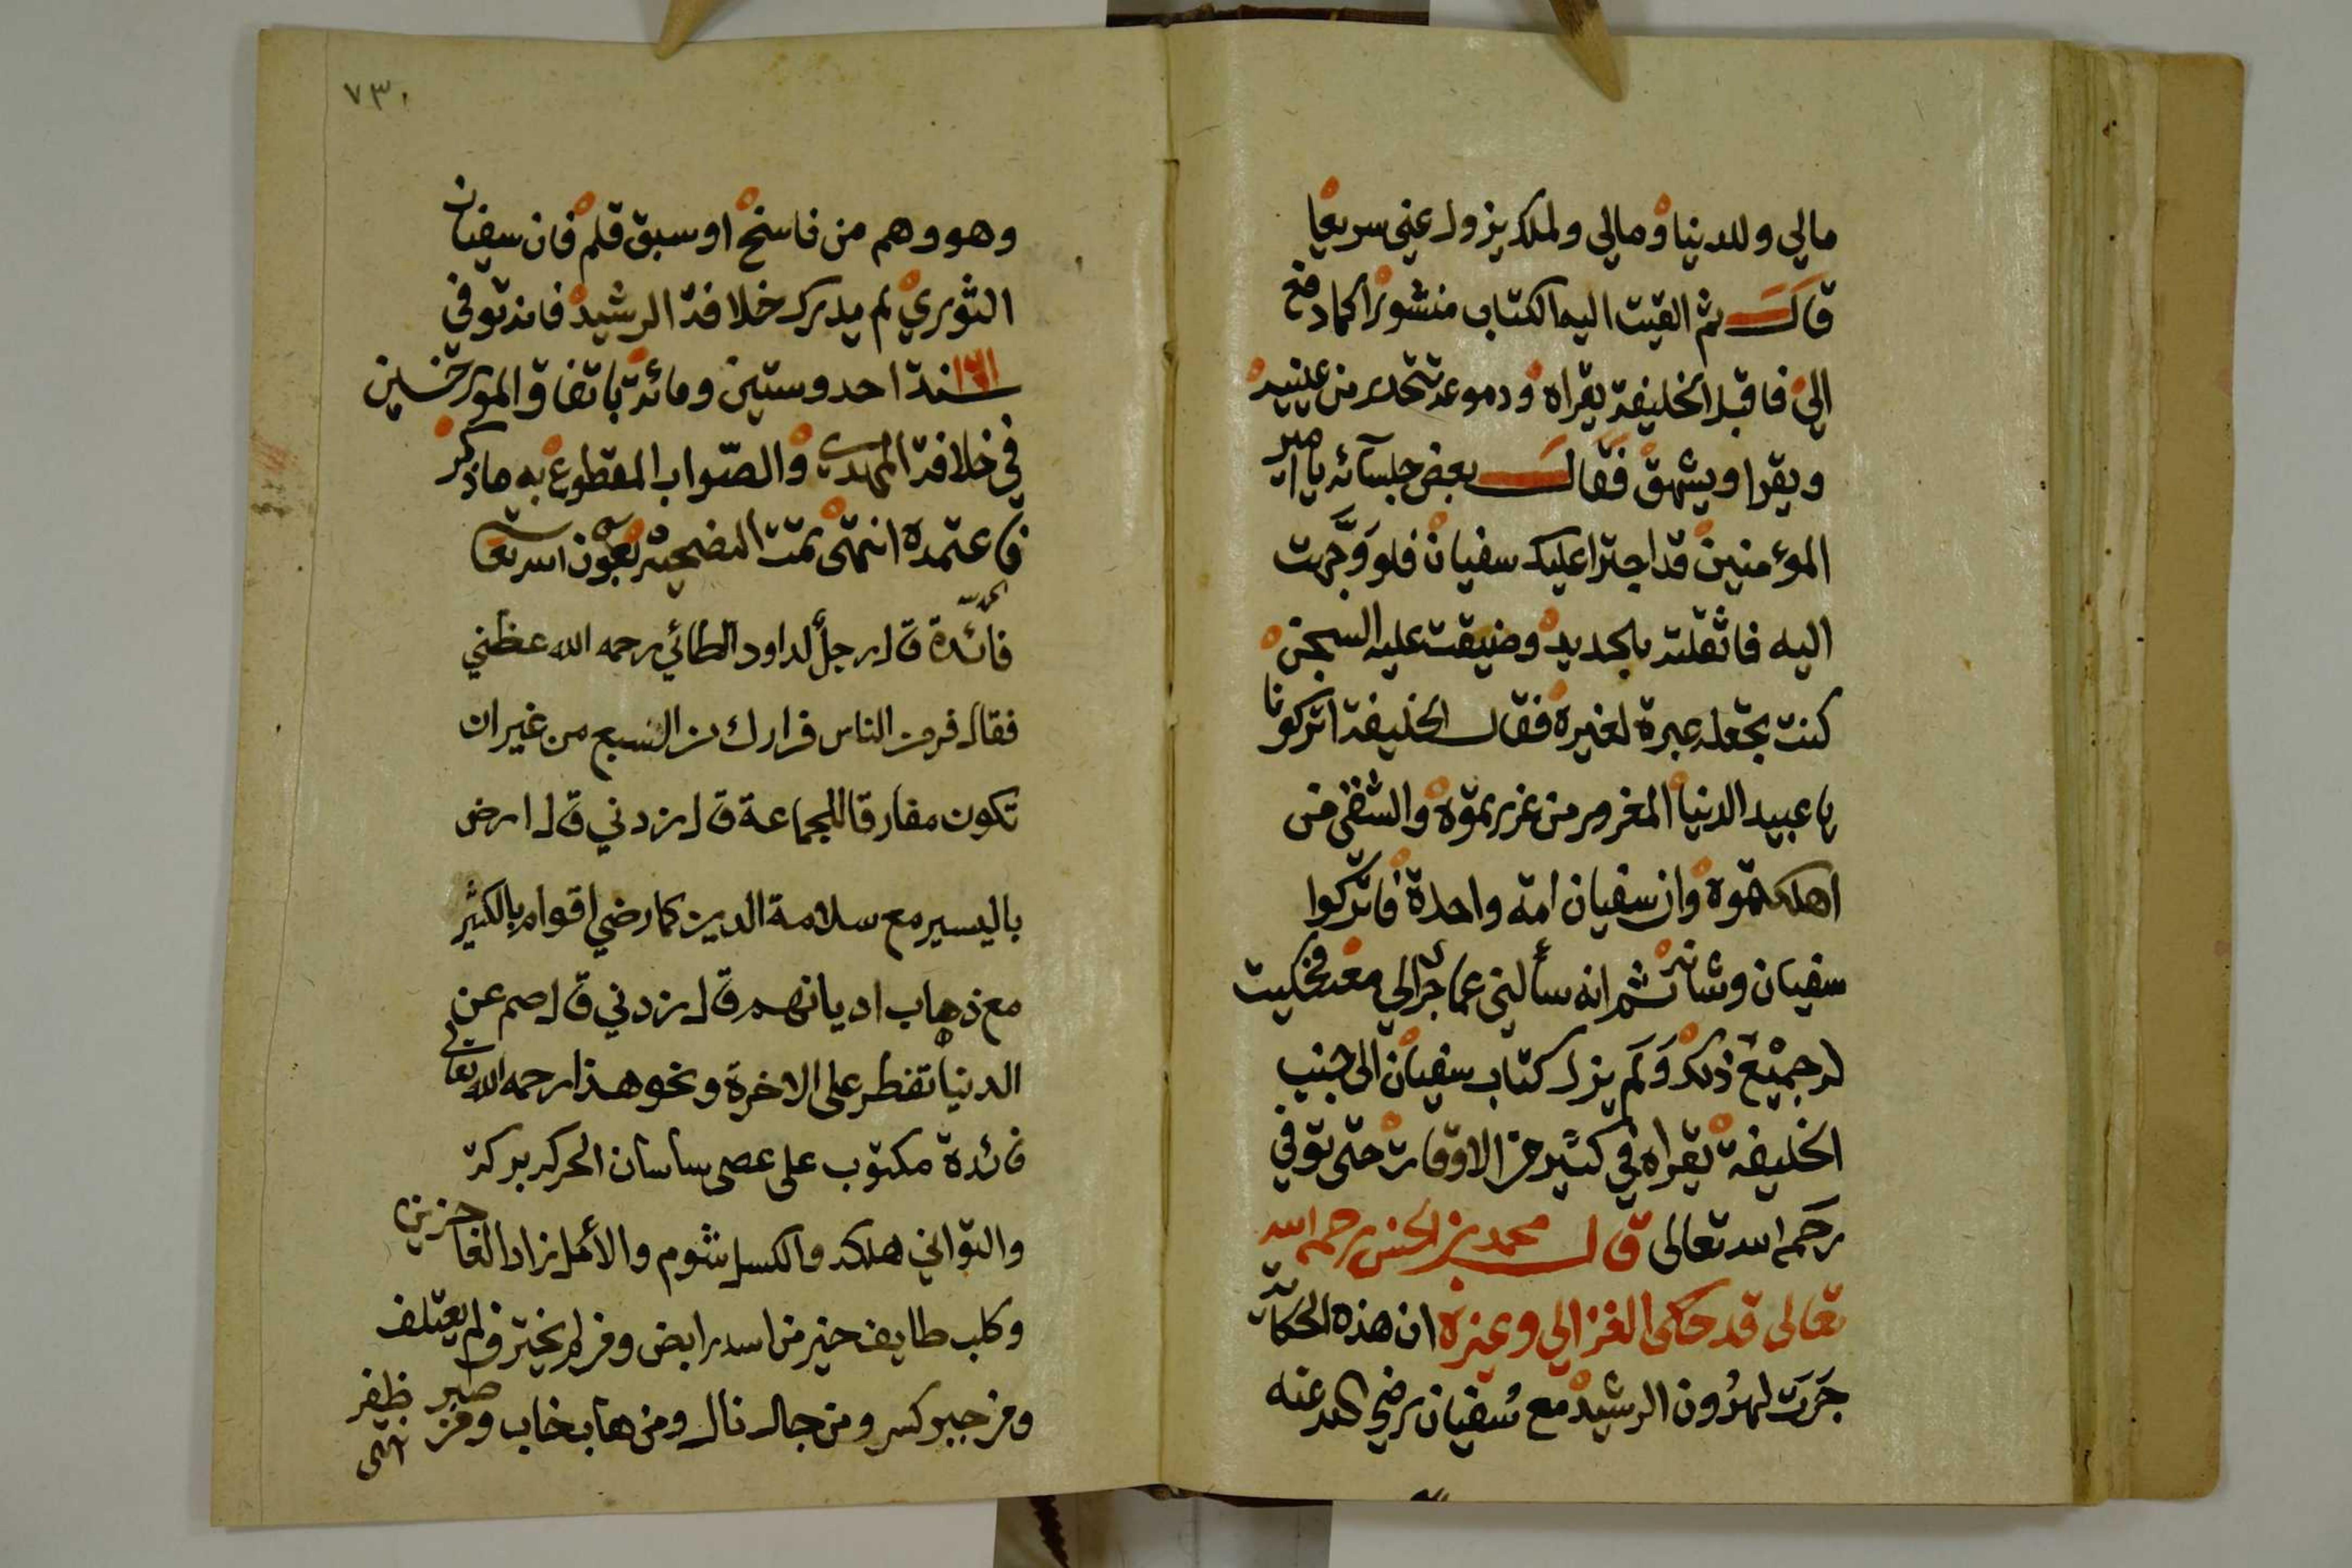 مالي وللدنيا ومالي ولملك يزول عني سريعا
قال ثم القيت اليه الكتاب منشورا كما دفع
الي فاقبل الخليفة يقراه ودموعه تتحدر من عينيه
ويقرا ويشهق فقال بعض جلسآئه يا امير
المؤمنين قد اجترا عليك سفيان فلو وجهت
اليه فاثقلته بالحديد وضيقت عليه السجن
كنت تجعله عبرة لغيره فقال الخليفة اتركونا
يا عبيد الدنيا المغرور من غررتموه والشقي من
اهلكتموه وان سفيان امة واحدة فاتركوا
سفيان وشانه ثم انه سألني عما جرالي معه فحكيت
له جميع ذلك ولم يزل كتاب سفيان الى جنب
الخليفة يقراه في كثير من الاوقات حتى توفي
رحمه الله تعالى قال محمد بن الحسن رحمه الله
تعالى قد حكى الغزالي وغيره ان هذه الحكاية
جرت لهرون الرشيد مع سفيان رضي الله عنه
٧٣
وهو وهم من ناسخ او سبق قلم فان سفيان
الثوري لم يدرك خلافة الرشيد فانه توفي
سنة احد وستين ومائة باتفاق المورخين
١٦١
في خلافة المهدي والصواب المقطوع به ما ذكر
فاعتمده انتهى تمت النصيحة بعون الله تعا
فائدة قال رجل لداود الطائي رحمه الله عظني
فقال فر من الناس فرارك من السبع من غير ان
تكون مفارقا للجماعة قال زدني قال ارض
باليسير مع سلامة الدين كما رضي اقوام بالكثير
مع ذهاب اديانهم قال زدني قال صم عن
الدنيا تفطر على الاخرة ونحو هذا رحمه الله تعالى
فائدة مكتوب على عصى ساسان الحركه بركه
والتواني هلكه والكسل شوم والأمل زاد العاجزين
وكلب طايف خير من اسد رابض ومن لم يحترف لم يعتلف
ومن جبر كسر ومن جال نال ومن هاب خاب ومن صبر ظفر